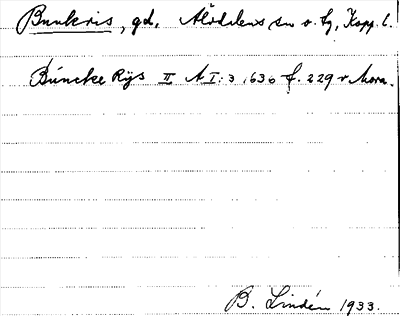 Bunkris, gd, Älvdalens sn o. tg, Kopp. l.
Búncke Rijs II A I: 3 1636 f. 229 v Mora.
B. Lindén 1933.